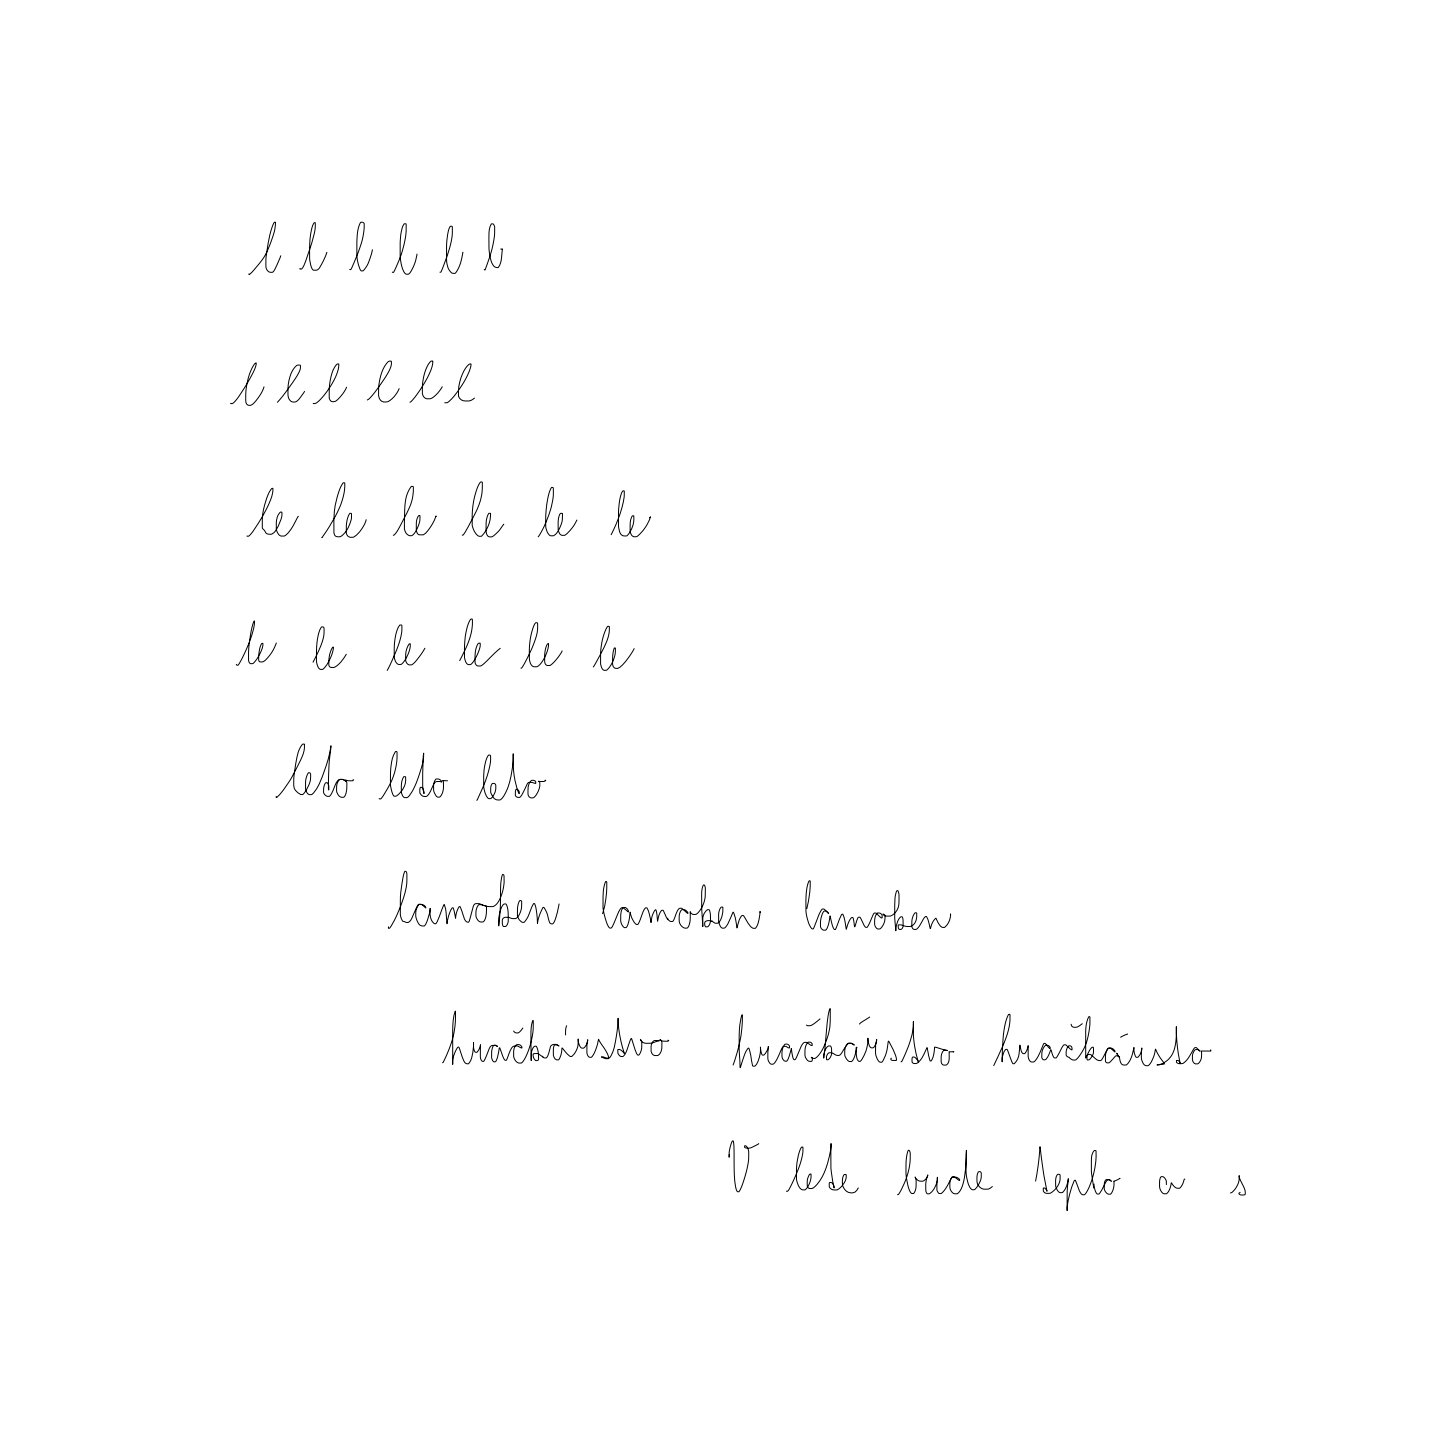 l l l l l l
l l l l l l
le le le le le le
le le le le le le
leto leto leto
lamoken lamoken lamoken
hračkárstvo hračkárstvo hračkársto
V lete bude teplo a s